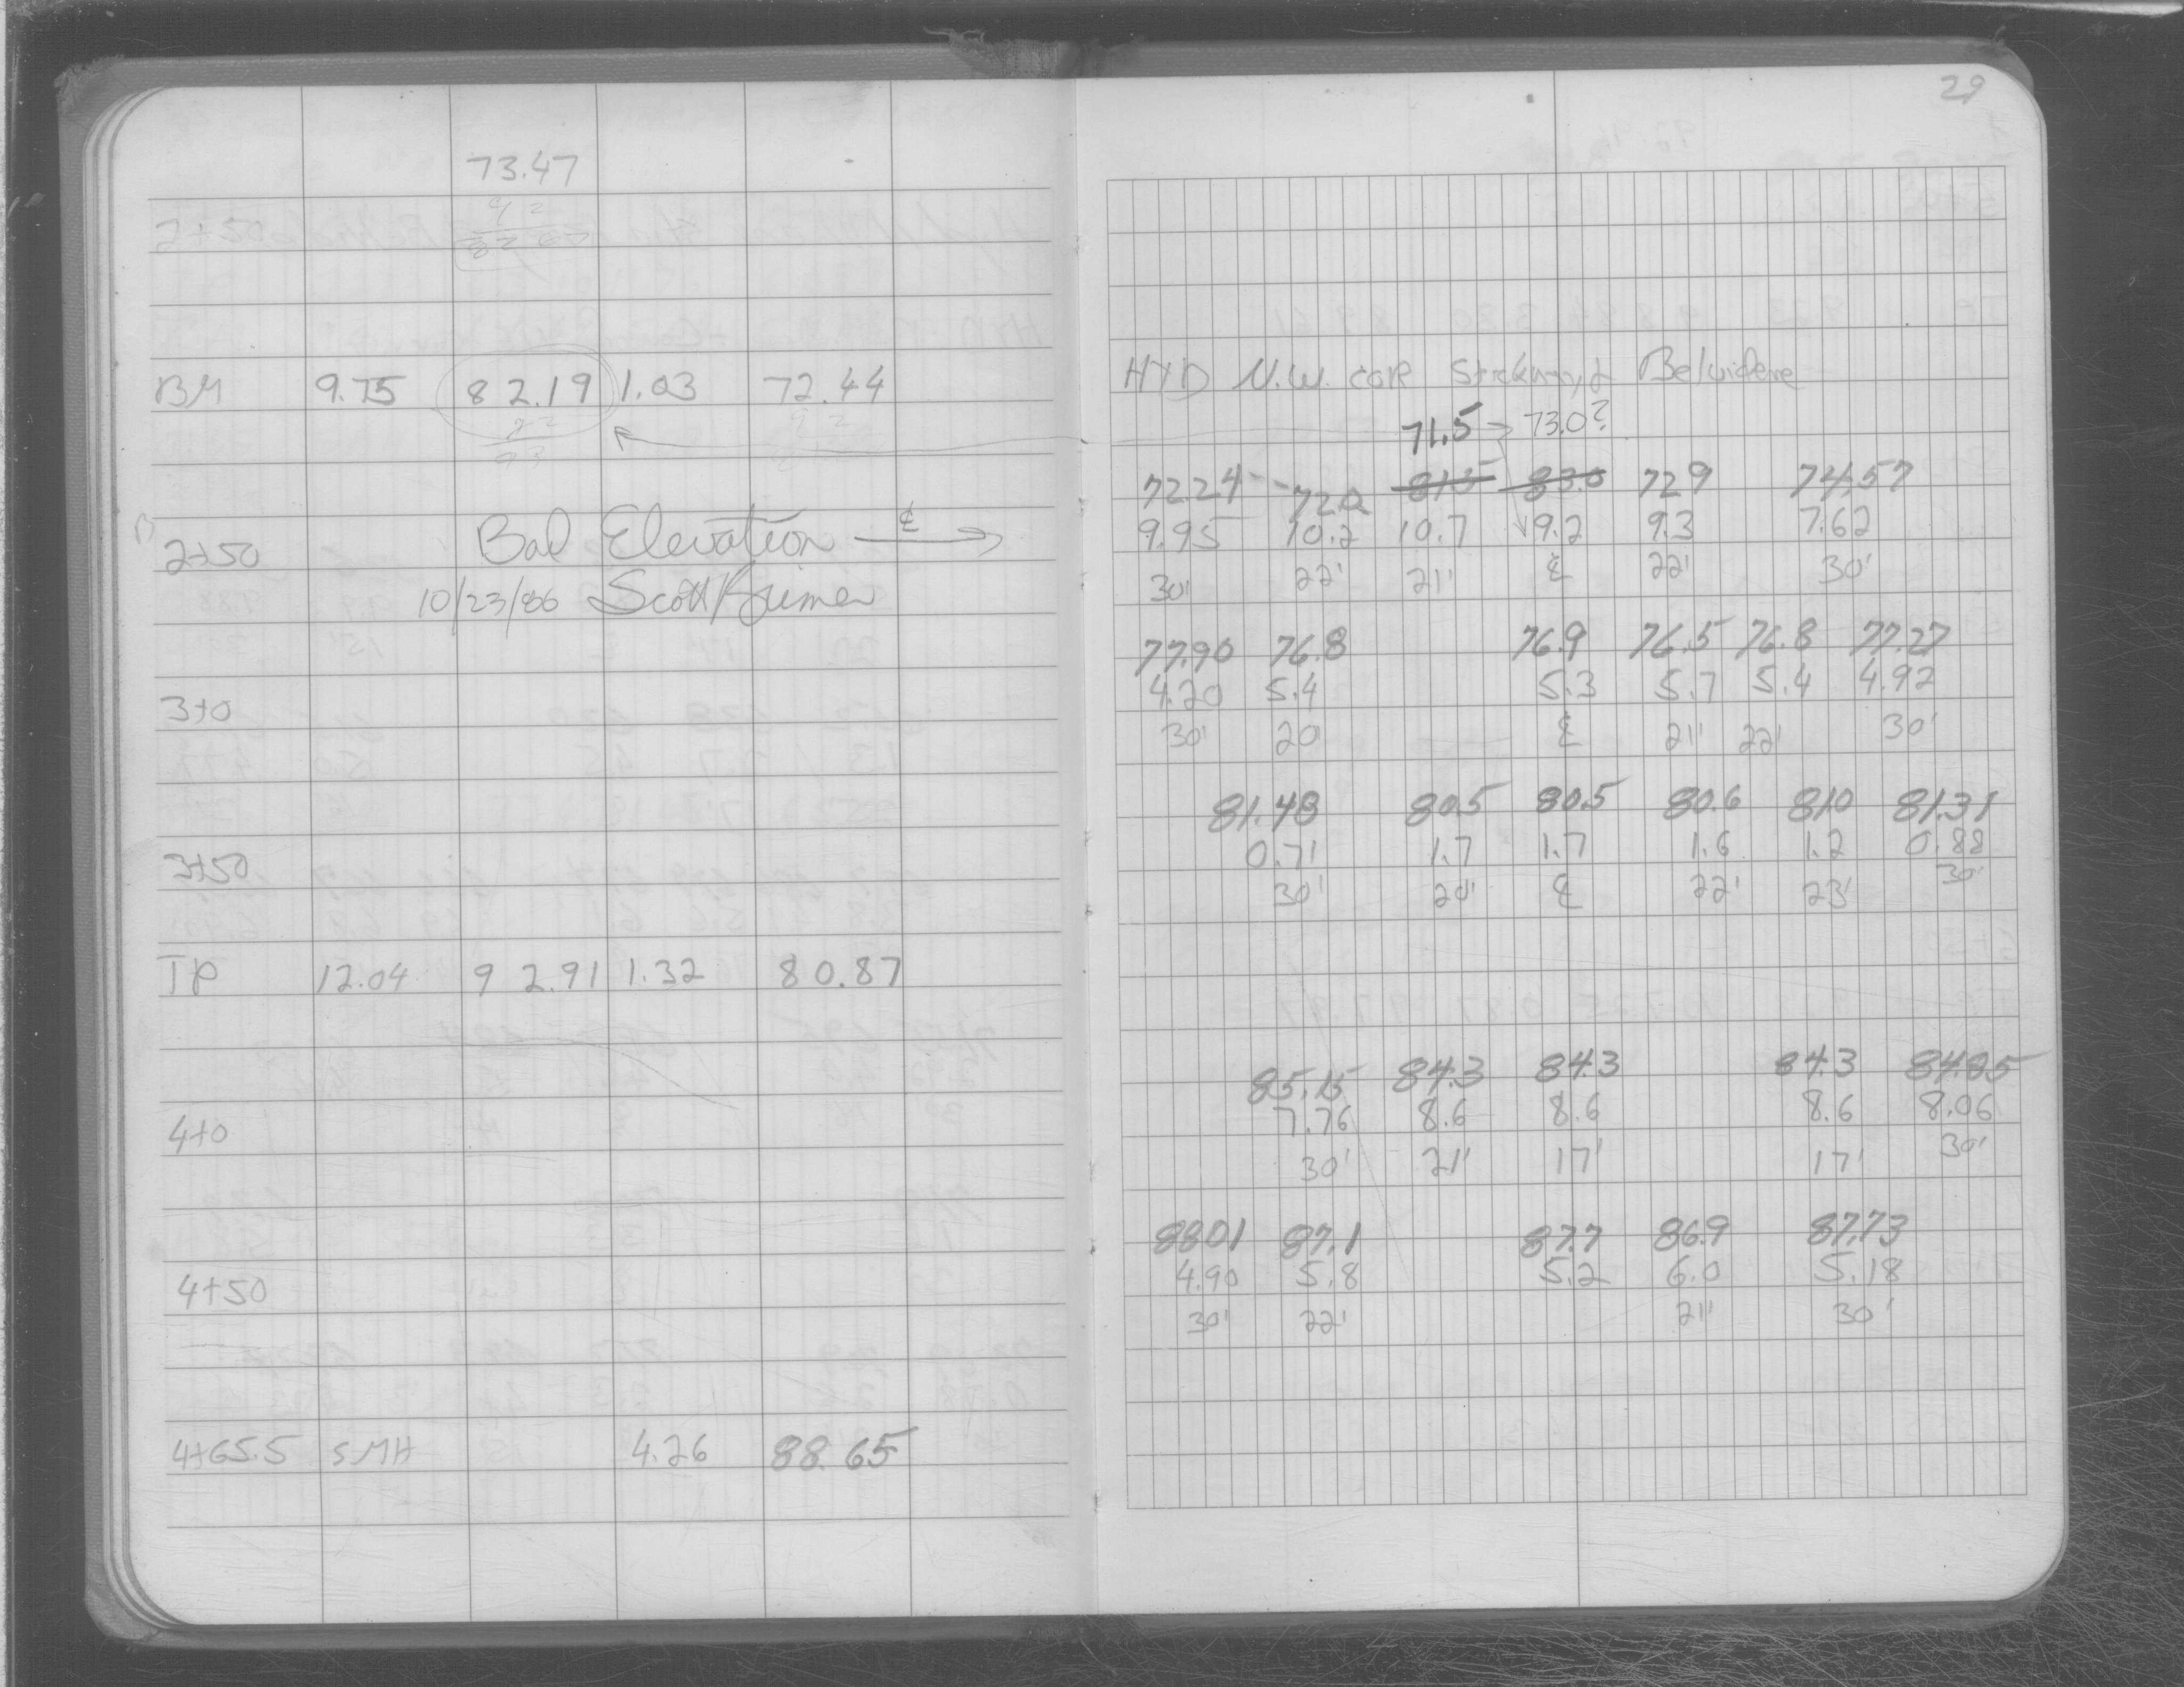 29
73.47
2+50
BM 9.75 82.19 1.03 72.44
HYD N.W. COR Belvidere
71.5 73.0?
72.24 72.0 81.5 83.0 72.9 74.57
9.95 10.2 10.7 9.2 9.3 7.62
2+50 Bad Elevation ℄
30' 22' 21' ℄ 22' 30'
10/23/86 Scott
77.90 76.8 76.9 76.5 76.8 77.27
4.20 5.4 5.3 5.7 5.4 4.92
3+0
30' 20' ℄ 21' 22' 30'
81.48 80.5 80.5 80.6 81.0 81.31
0.71 1.7 1.7 1.6 1.2 0.88
3+50
30' 20' ℄ 22' 23' 30'
TP 12.04 92.91 1.32 80.87
85.15 84.3 84.3 84.3 84.85
7.76 8.6 8.6 8.6 8.06
4+0
30' 21' 17' 17' 30'
88.01 87.1 87.7 86.9 87.73
4.90 5.8 5.2 6.0 5.18
4+50
30' 22' 21' 30'
4+65.5 SMH 4.26 88.65